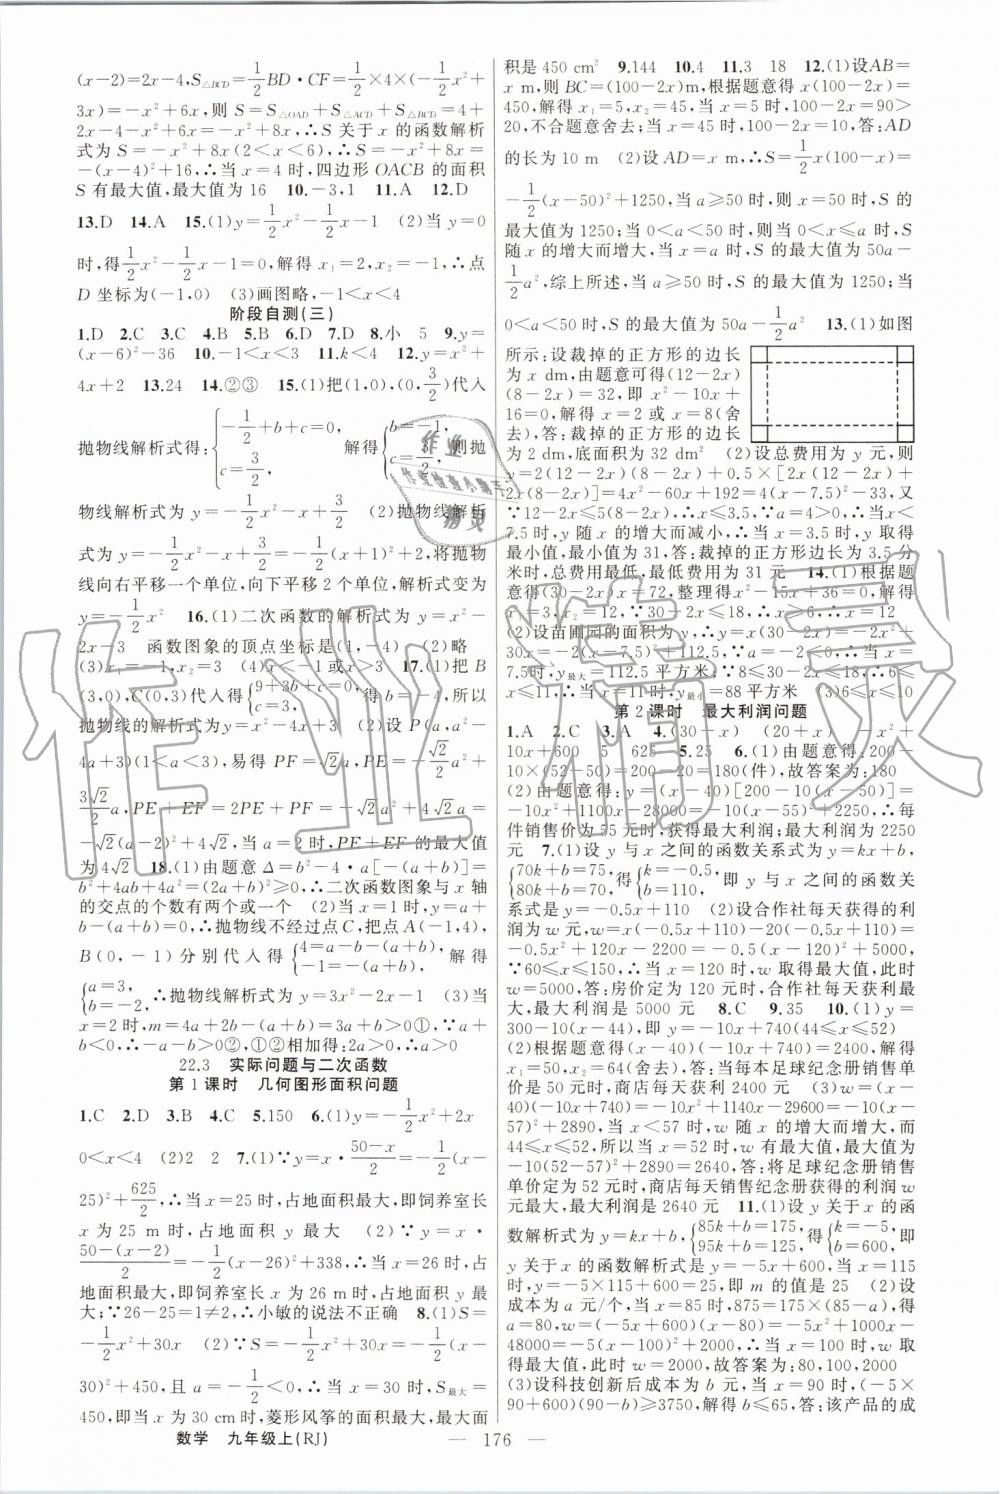 (x-2)=2x-4,S△BCD=1/2BD·CF=1/2×4×(-1/2x²+
3x)=-x²+6x,则 S=S△OAD+S△ACD+S△BCD=4+
2x-4-x²+6x=-x²+8x,∴S 关于 x 的函数解析
式为 S=-x²+8x(2<x<6),∴S=-x²+8x=
-(x-4)²+16,∴当 x=4 时,四边形 OACB 的面积
S 有最大值,最大值为 16 10.-3,1 11.A 12.D
13.D 14.A 15.(1)y=1/2x²-1/2x-1 (2)当 y=0
时,得1/2x²-1/2x-1=0,解得 x₁=2,x₂=-1,∴点
D 坐标为(-1,0) (3)画图略,-1<x<4
阶段自测(三)
1.D 2.C 3.C 4.B 5.B 6.D 7.D 8.小 5 9.y=
(x-6)²-36 10.-1<x<3 11.k<4 12.y=x²+
4x+2 13.24 14.②③ 15.(1)把(1,0),(0,3/2)代入
抛物线解析式得:{-1/2+b+c=0, c=3/2, 解得{b=-1, c=3/2, 则抛
物线解析式为 y=-1/2x²-x+3/2 (2)抛物线解析
式为 y=-1/2x²-x+3/2=-1/2(x+1)²+2,将抛物
线向右平移一个单位,向下平移 2 个单位,解析式变为
y=-1/2x² 16.(1)二次函数的解析式为 y=x²-
2x-3 函数图象的顶点坐标是(1,-4) (2)略
(3)x₁=-1,x₂=3 (4)x<-1 或 x>3 17.(1)把 B
(3,0),C(0,3)代入得{9+3b+c=0, c=3, 得 b=-4,所以
抛物线的解析式为 y=x²-4x+3 (2)设 P(a,a²-
4a+3)(1<a<3),易得 EF=PF=√2a,PE=-√2a²+
3√2/2a,PE+EF=2PE+PF=-√2a²+4√2a=
-√2(a-2)²+4√2,当 a=2 时,PE+EF 的最大值
为 4√2 18.(1)由题意 Δ=b²-4·a[-(a+b)]=
b²+4ab+4a²=(2a+b)²≥0,∴二次函数图象与 x 轴
的交点的个数有两个或一个 (2)当 x=1 时,y=a+
b-(a+b)=0,∴抛物线不经过点 C,把点 A(-1,4),
B(0,-1)分别代入得{4=a-b-(a+b), -1=-(a+b), 解得
{a=3, b=-2, ∴抛物线解析式为 y=3x²-2x-1 (3)当
x=2 时,m=4a+2b-(a+b)=3a+b>0①,∵a+
b<0,∴-a-b>0②,①②相加得:2a>0,∴a>0
22.3 实际问题与二次函数
第 1 课时 几何图形面积问题
1.C 2.D 3.B 4.C 5.150 6.(1)y=-1/2x²+2x
0<x<4 (2)2 2 7.(1)∵y=x·(50-x)/2=-1/2(x-
25)²+625/2,∴当 x=25 时,占地面积最大,即饲养室长
x 为 25 m 时,占地面积 y 最大 (2)∵y=x·
(50-(x-2))/2=-1/2(x-26)²+338,∴当 x=26 时,占
地面积最大,即饲养室长 x 为 26 m 时,占地面积 y 最
大;∵26-25=1≠2,∴小敏的说法不正确 8.(1)S=
-1/2x²+30x (2)∵S=-1/2x²+30x=-1/2(x-
30)²+450,且 a=-1/2<0,∴当 x=30 时,S最大=
450,即当 x 为 30 cm 时,菱形风筝的面积最大,最大面
积是 450 cm² 9.144 10.4 11.3 18 12.(1)设AB=
x m,则 BC=(100-2x)m,根据题意得 x(100-2x)=
450,解得 x₁=5,x₂=45,当 x=5 时,100-2x=90>
20,不合题意舍去;当 x=45 时,100-2x=10,答:AD
的长为 10 m (2)设 AD=x m,∴S=1/2x(100-x)=
-1/2(x-50)²+1250,当 a≥50 时,则 x=50 时,S 的
最大值为 1250;当 0<a<50 时,则当 0<x≤a 时,S
随 x 的增大而增大,当 x=a 时,S 的最大值为 50a-
1/2a²,综上所述,当 a≥50 时,S 的最大值为 1250;当
0<a<50 时,S 的最大值为 50a-1/2a² 13.(1)如图
所示:设裁掉的正方形的边长
为 x dm,由题意可得(12-2x)
(8-2x)=32,即 x²-10x+
16=0,解得 x=2 或 x=8(舍
去),答:裁掉的正方形的边长
为 2 dm,底面积为 32 dm² (2)设总费用为 y 元,则
y=2(12-2x)(8-2x)+0.5×[2x(12-2x)+
2x(8-2x)]=4x²-60x+192=4(x-7.5)²-33,又
∵12-2x≤5(8-2x),∴x≤3.5,∵a=4>0,∴当x<
7.5 时,y 随 x 的增大而减小,∴当 x=3.5 时,y 取得
最小值,最小值为 31,答:裁掉的正方形的边长为 3.5 分
米时,总费用最低,最低为 31 元 14.(1)根据题
意得(30-2x)x=72,整理得x²-15x+36=0,解得
x₁=3,x₂=12,∵30-2x≤18,∴x≥6,∴x=12
(2)设苗圃园的面积为 y,∴y=x(30-2x)=-2x²+
30x=-2(x-15/2)²+112.5,∵a=-2<0,∴当x=
7.5时,y最大=112.5 平方米;∵8≤30-2x≤18,∴6≤
x≤11,∴当x=11时,y最小=88 平方米 (3)6≤x≤10
第 2 课时 最大利润问题
1.A 2.C 3.A 4.(30-x) (20+x) -x²+
10x+600 5 625 5.25 6.(1)由题意得:200-
10×(52-50)=200-20=180(件),故答案为:180
(2)由题意得:y=(x-40)[200-10(x-50)]=
-10x²+1100x-28000=-10(x-55)²+2250,∴每
件销售价为 55 元时,获得最大利润;最大利润为 2250
元 7.(1)设 y 与 x 之间的函数关系式为 y=kx+b,
{70k+b=75, 80k+b=70, 得{k=-0.5, b=110, 即 y 与 x 之间的函数关
系式是 y=-0.5x+110 (2)设合作社每天获得的利
润为 w 元,w=x(-0.5x+110)-20(-0.5x+110)=
-0.5x²+120x-2200=-0.5(x-120)²+5000,
∵60≤x≤150,∴当 x=120 时,w 取得最大值,此时
w=5000,答:房价定为 120 元时,合作社每天获利最
大,最大利润是 5000 元 8.C 9.35 10.(1)y=
300-10(x-44),即 y=-10x+740(44≤x≤52)
(2)根据题意得(x-40)(-10x+740)=2400,解得
x₁=50,x₂=64(舍去),答:当每本足球纪念册销售单
价是 50 元时,商店每天获利 2400 元 (3)w=(x-
40)(-10x+740)=-10x²+1140x-29600=-10(x-
57)²+2890,当 x<57 时,w 随 x 的增大而增大,而
44≤x≤52,所以当 x=52 时,w 有最大值,最大值为
-10(52-57)²+2890=2640,答:将足球纪念册销售
单价定为 52 元时,商店每天销售纪念册获得的利润 w
元最大,最大利润是 2640 元 11.(1)设 y 关于 x 的函
数解析式为 y=kx+b,{85k+b=175, 95k+b=125, 得{k=-5, b=600, 即
y 关于 x 的函数解析式是 y=-5x+600,当 x=115
时,y=-5×115+600=25,即 m 的值是 25 (2)设
成本为 a 元/个,当 x=85 时,875=175×(85-a),得
a=80,w=(-5x+600)(x-80)=-5x²+1000x-
48000=-5(x-100)²+2000,∴当 x=100 时,w 取
得最大值,此时 w=2000,故答案为:80,100,2000
(3)设科技创新后成本为 b 元,当 x=90 时,(-5×
90+600)(90-b)≥3750,解得 b≤65,答:该产品的成
数学 九年级上(RJ)
— 176 —
作业精灵
作业
作业检查小帮手
精灵